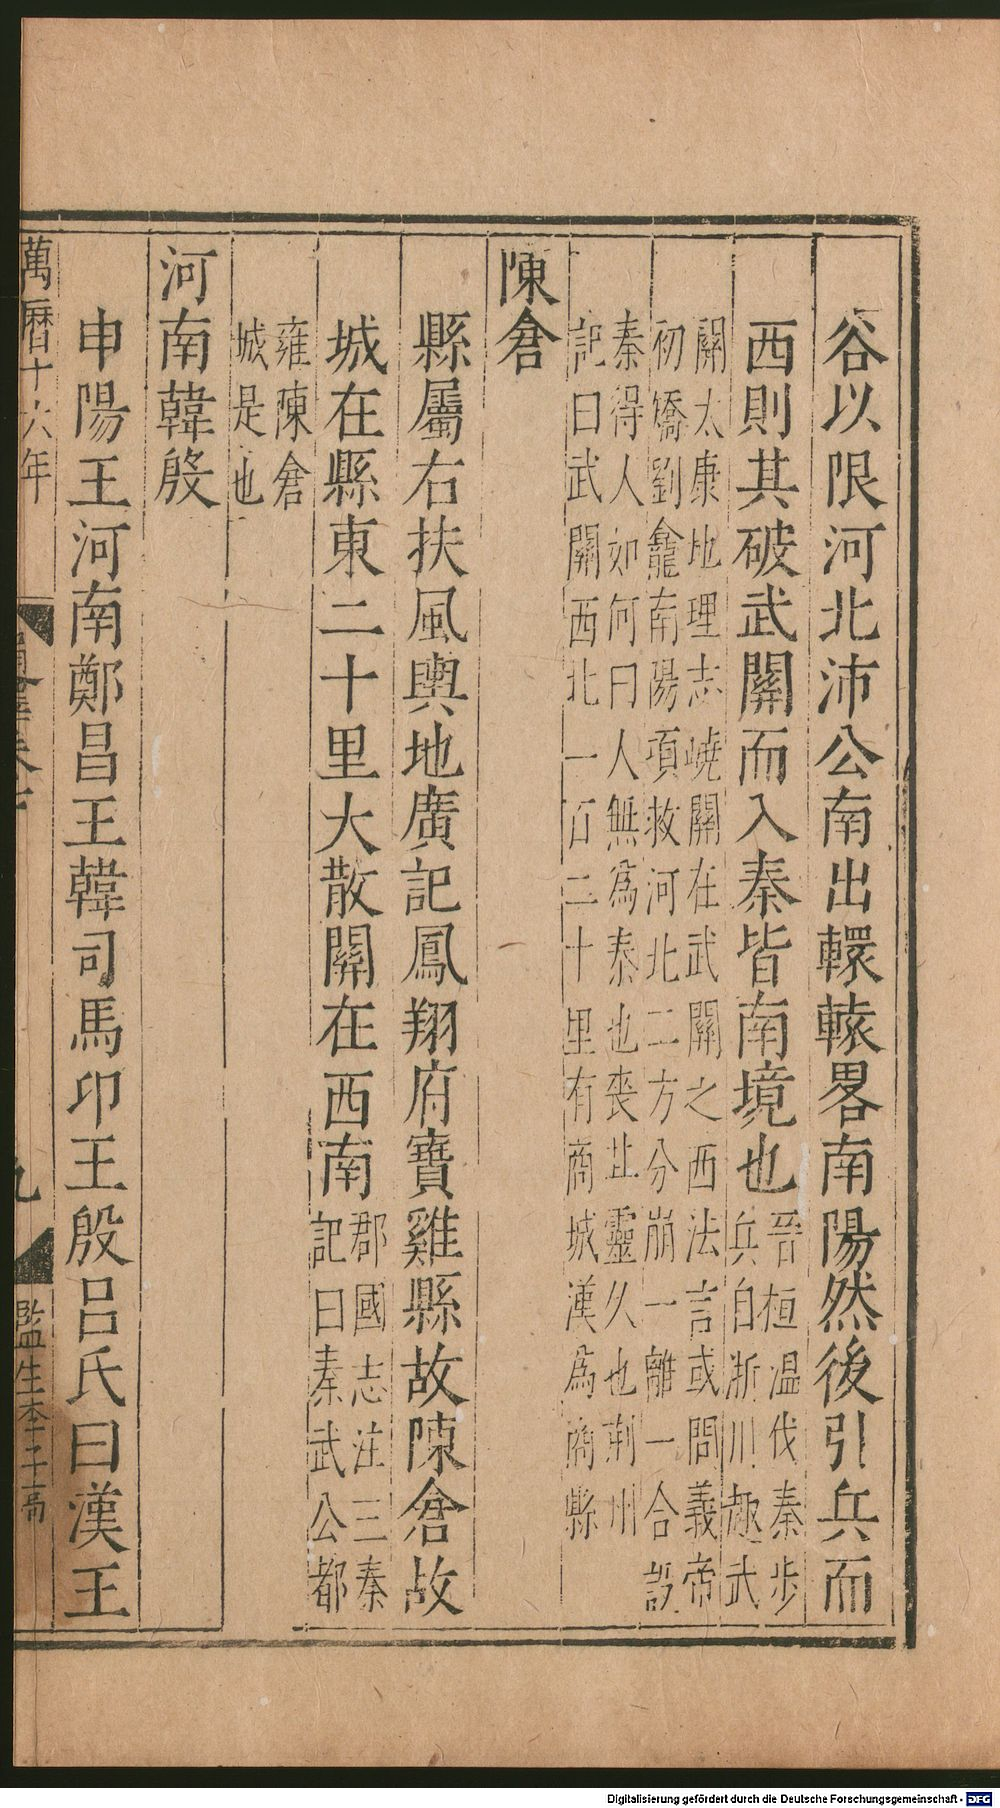 谷以限河北沛公南出轘轅畧南陽然後引兵而
西則其破武關而入秦皆南境也
晉桓温伐秦步
兵自淅川趣武
關太康地理志嶢關在武關之西法言或問義帝
初矯劉龕南陽項救河北二方分崩一離一合設
秦得人如何曰人無爲秦也喪其靈久也荆州
記曰武關西北一百二十里有商城漢爲商縣
陳倉
縣屬右扶風輿地廣記鳳翔府寶雞縣故陳倉故
城在縣東二十里大散關在西南
郡國志注三秦
記曰秦武公都
雍陳倉
城是也
河南韓殷
申陽王河南鄭昌王韓司馬卬王殷吕氏曰漢王
萬曆十六年
九
監生李
Digitalisierung gefördert durch die Deutsche Forschungsgemeinschaft - DFG